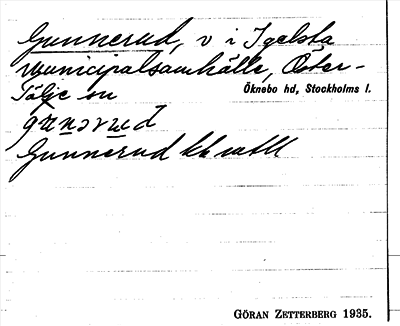 Gunnerud, v i Igelsta
municipalsamhälle, Öster-
Tälje sn Öknebo hd, Stockholms l.
Gunnerud
GÖRAN ZETTERBERG 1935.